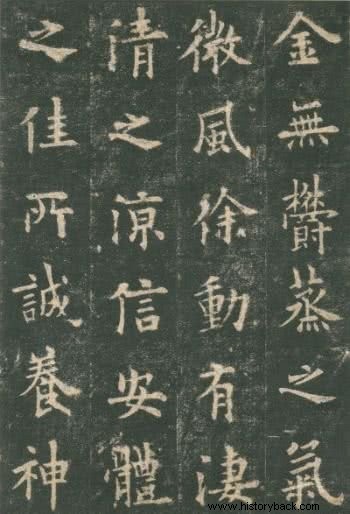 金無欝蒸之氣
微風徐動有淒
清之涼信安體
之佳所誠養神
www.historyback.com